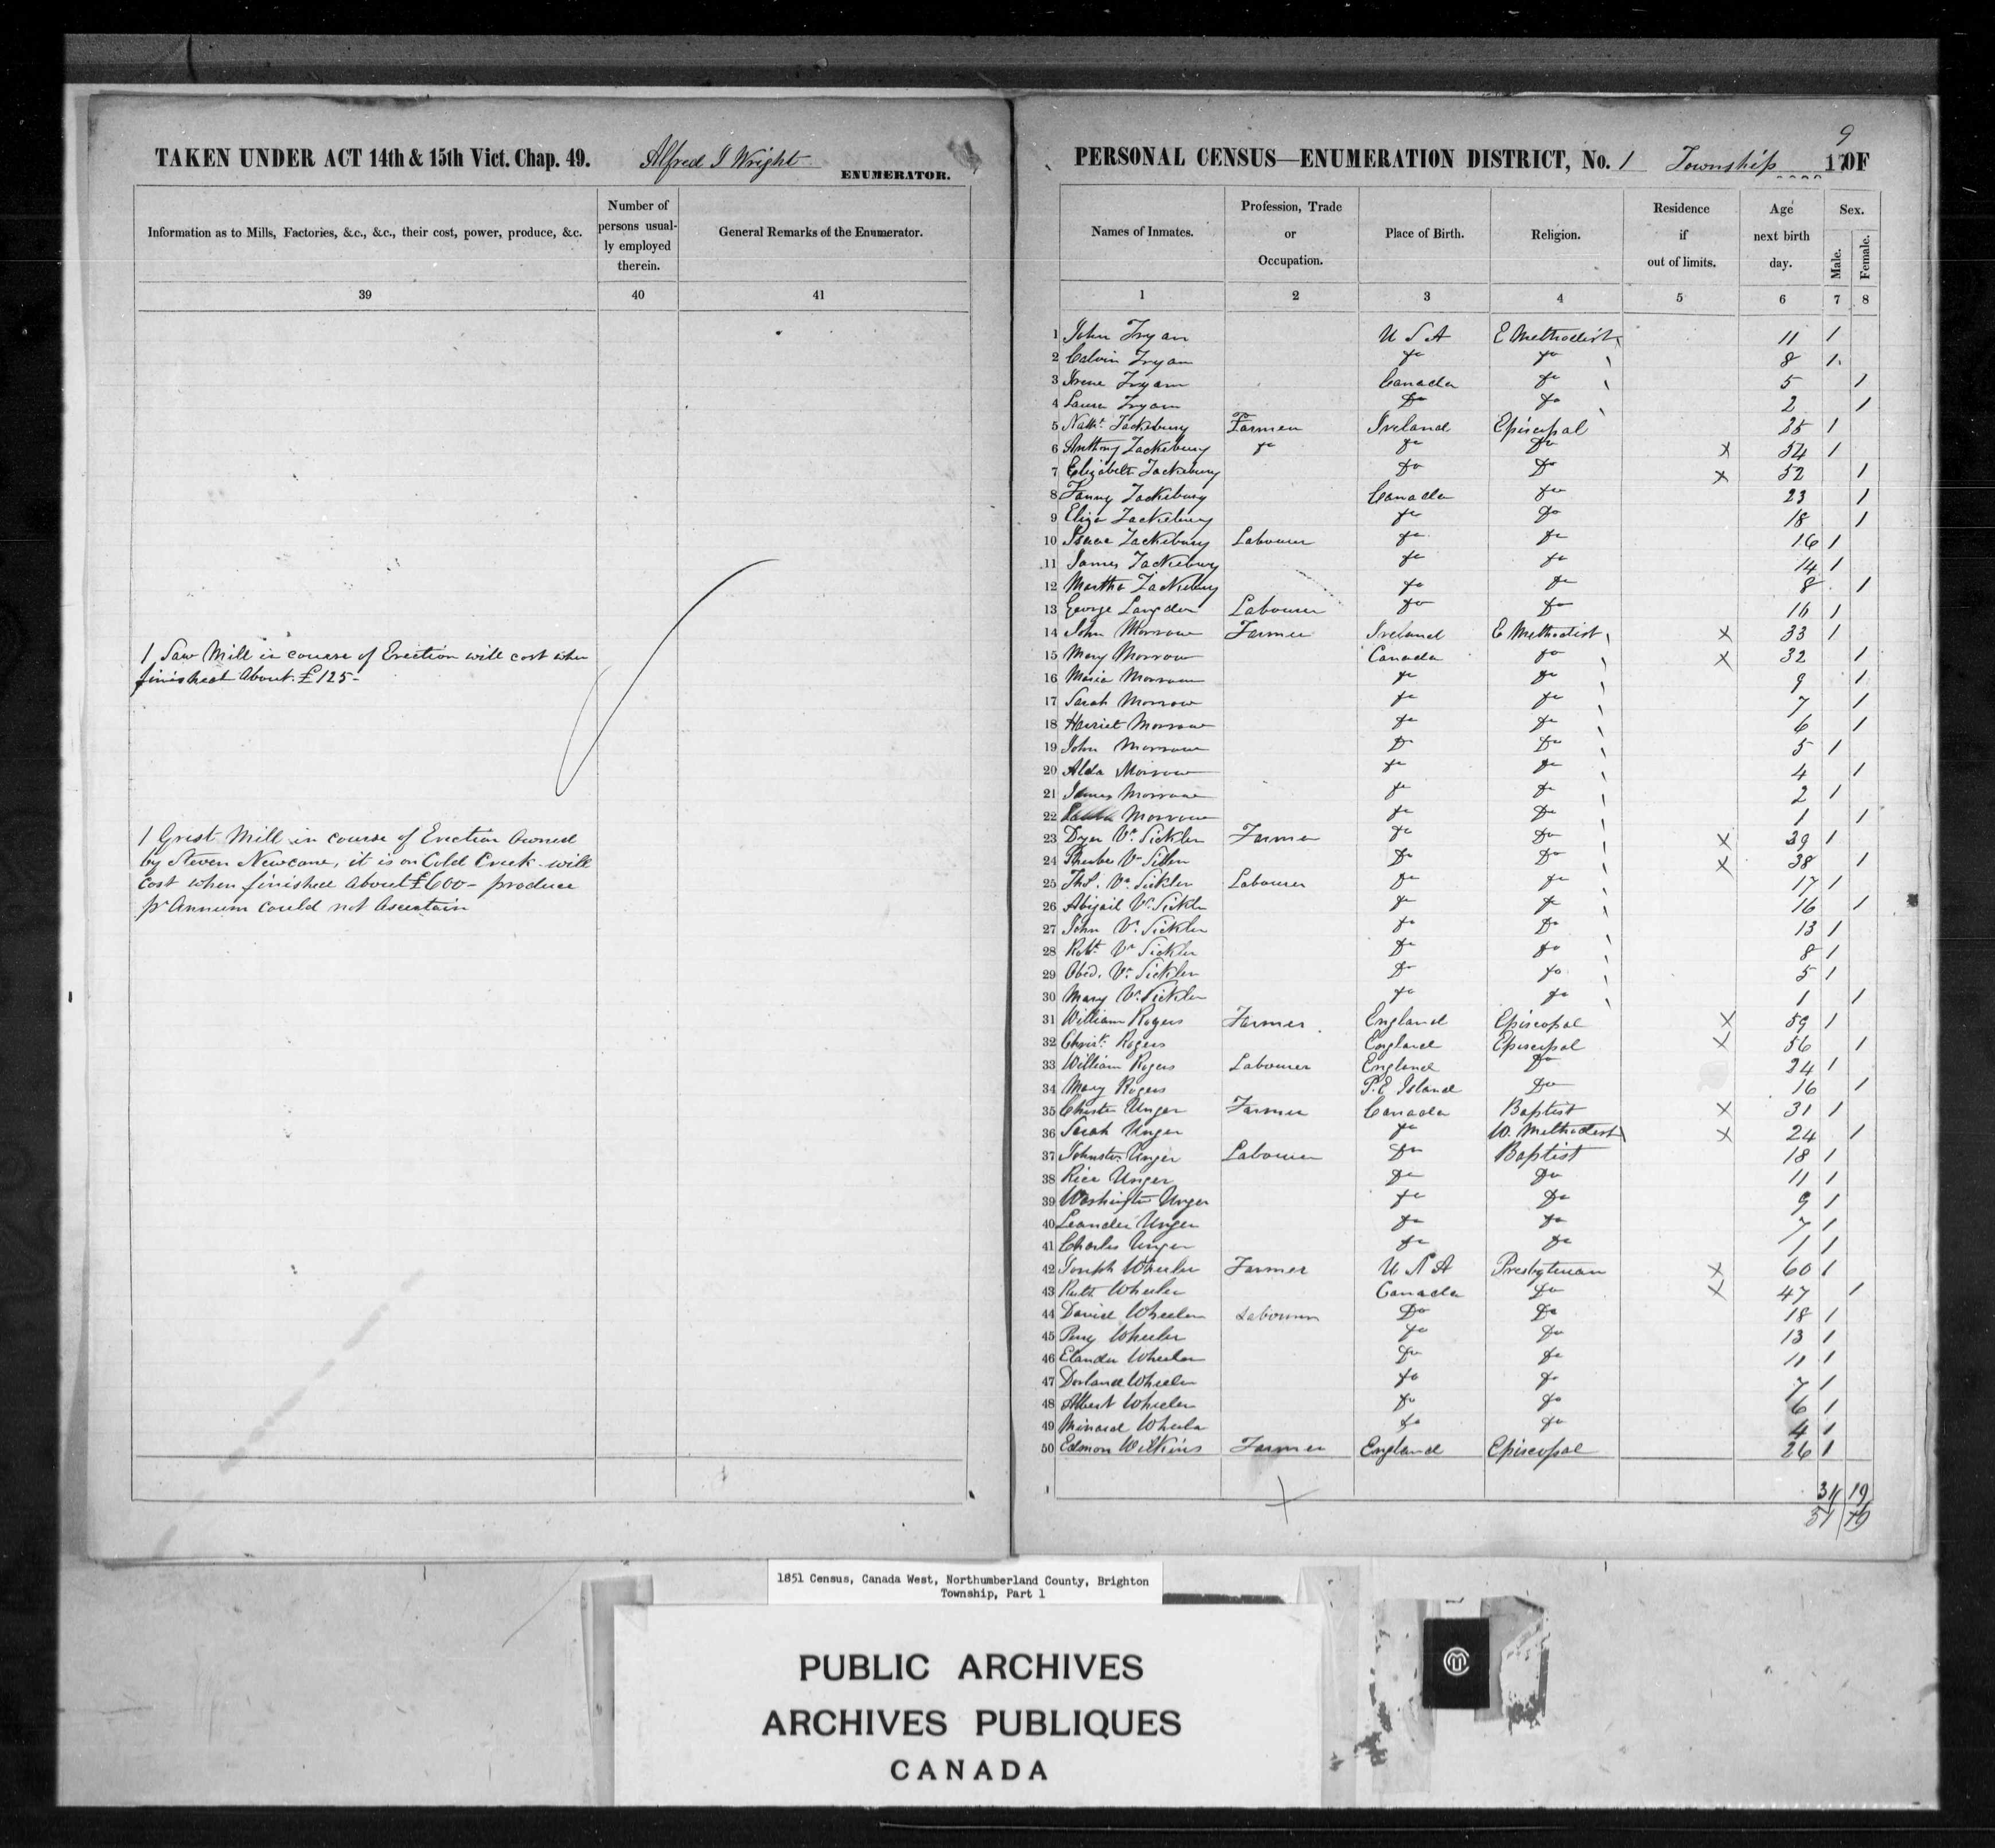 TAKEN UNDER ACT 14th & 15th Vict. Chap. 49. Alfred J Wright ENUMERATOR.
Information as to Mills, Factories, &c., &c., their cost, power, produce, &c.
Number of persons usually employed therein.
General Remarks of the Enumerator.
39 40 41
1 Saw Mill in course of Erection will cost when
finished About £125-
1 Grist Mill in course of Erection Owned
by Steven Newcome, it is on Cold Creek will
cost when finished about £600- produce
pr Annum could not Ascertain
9
PERSONAL CENSUS—ENUMERATION DISTRICT, No. 1 Township 17 OF
Names of Inmates.
Profession, Trade or Occupation.
Place of Birth.
Religion.
Residence if out of limits.
Age next birth day.
Sex.
Male.
Female.
1 2 3 4 5 6 7 8
1 John Tryan U S A E Methodist 11 1
2 Calvin Tryan Do Do 8 1
3 Irene Tryan Canada Do 5 1
4 Laura Tryan Do Do 2 1
5 Natht Tackebury Farmer Ireland Episcopal 25 1
6 Anthony Tackebury Do Do Do x 54 1
7 Elizabeth Tackebury Do Do x 52 1
8 Fanny Tackebury Canada Do 23 1
9 Eliza Tackebury Do Do 18 1
10 Isaac Tackebury Labourer Do Do 16 1
11 James Tackebury Do Do 14 1
12 Martha Tackebury Do Do 8 1
13 George Langdon Labourer Do Do 16 1
14 John Morrow Farmer Ireland E Methodist x 33 1
15 Mary Morrow Canada Do x 32 1
16 Maria Morrow Do Do 9 1
17 Sarah Morrow Do Do 7 1
18 Harriet Morrow Do Do 6 1
19 John Morrow Do Do 5 1
20 Alda Morrow Do Do 4 1
21 James Morrow Do Do 2 1
22 Morrow Do Do 1 1
23 Dyer Vn Sickler Farmer Do Do x 39 1
24 Pheebe Vn Sickler Do Do x 38 1
25 Ths. Vn Sickler Labourer Do Do 17 1
26 Abigail Vn Sickler Do Do 16 1
27 John Vn Sickler Do Do 13 1
28 Robt Vn Sickler Do Do 8 1
29 Obed. Vn Sickler Do Do 5 1
30 Mary Vn Sickler Do Do 1 1
31 William Rogers Farmer England Episcopal x 59 1
32 Christ. Rogers England Episcopal x 56 1
33 William Rogers Labourer England Do 24 1
34 Mary Rogers P.E Island Do 16 1
35 Chester Unger Farmer Canada Baptist x 31 1
36 Sarah Unger Do W. Methodist x 24 1
37 Johnston Unger Labourer Do Baptist 18 1
38 Rice Unger Do Do 11 1
39 Washington Unger Do Do 9 1
40 Leander Unger Do Do 7 1
41 Charles Unger Do Do 1 1
42 Joseph Wheeler Farmer U S A Presbyterian x 60 1
43 Ruth Wheeler Canada Do x 47 1
44 David Wheeler Labourer Do Do 18 1
45 Perry Wheeler Do Do 13 1
46 Elander Wheeler Do Do 11 1
47 Dorland Wheeler Do Do 7 1
48 Albert Wheeler Do Do 6 1
49 Minard Wheeler Do Do 4 1
50 Edmon Wilkins Farmer England Episcopal 26 1
31 19
1851 Census, Canada West, Northumberland County, Brighton
Township, Part 1
PUBLIC ARCHIVES
ARCHIVES PUBLIQUES
CANADA